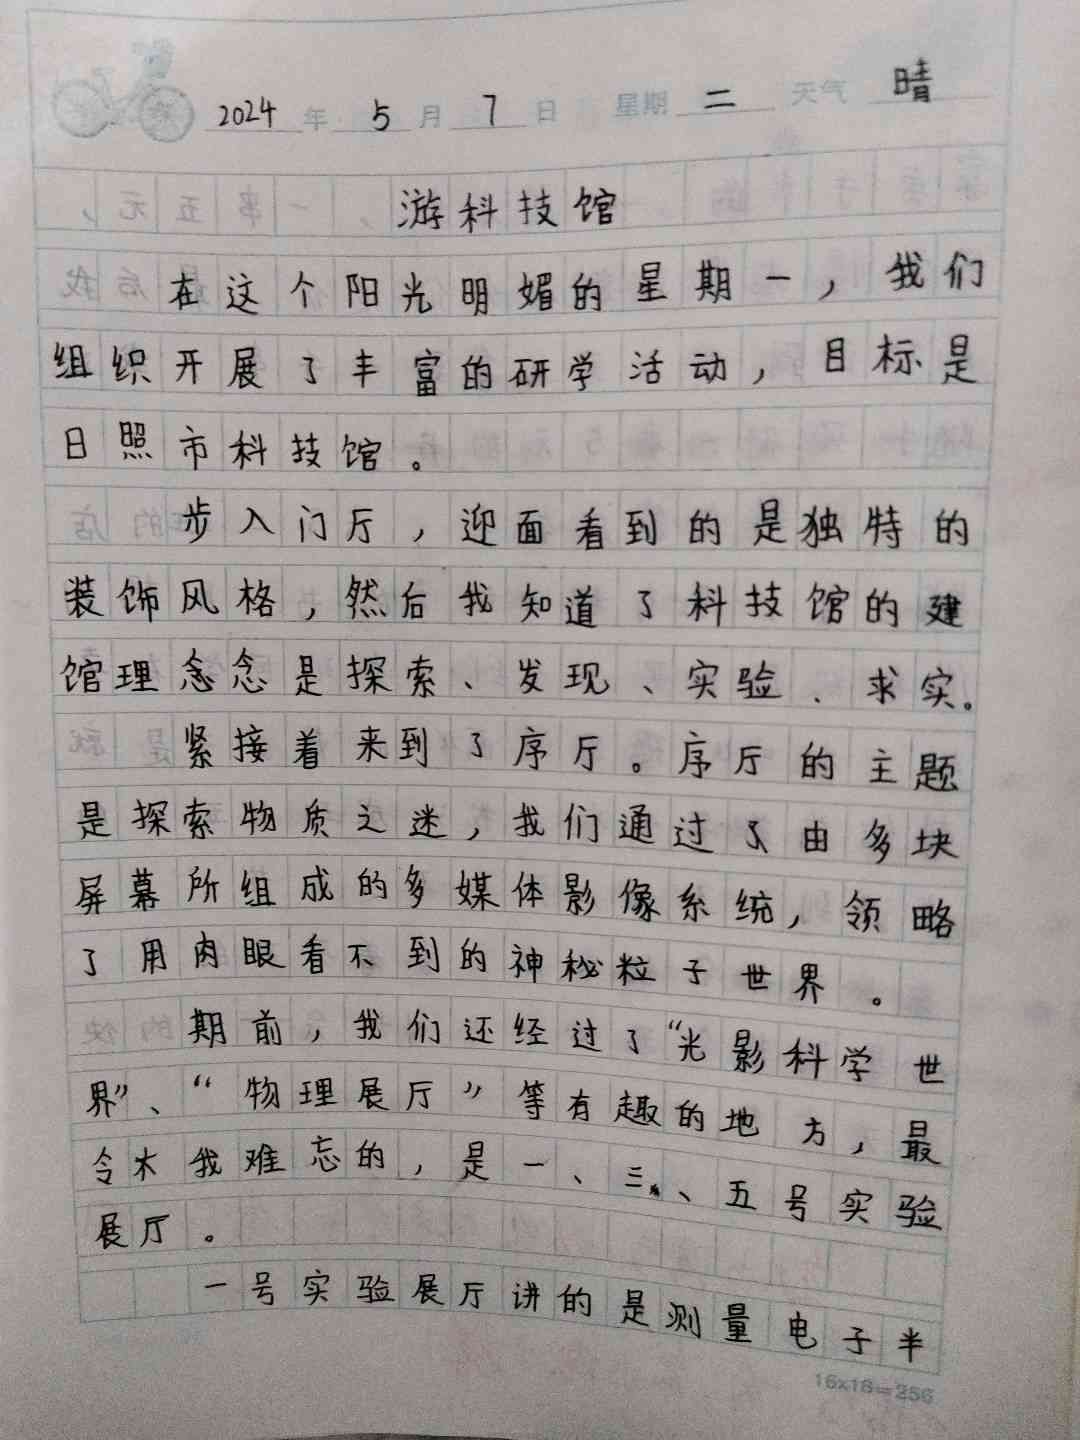 2024年5月7日 星期二 天气 晴
游科技馆
在这个阳光明媚的星期一，我们
组织开展了丰富的研学活动，目标是
日照市科技馆。
步入门厅，迎面看到的是独特的
装饰风格，然后我知道了科技馆的建
馆理念念是探索、发现、实验、求实。
紧接着来到了序厅。序厅的主题
是探索物质之迷，我们通过了由多块
屏幕所组成的多媒体影像系统，领略
了用肉眼看不到的神秘粒子世界。
期前，我们还经过了“光影科学世
界”、“物理展厅”等有趣的地方，最
令木我难忘的，是一、三、五号实验
展厅。
一号实验展厅讲的是测量电子半
16x16=256